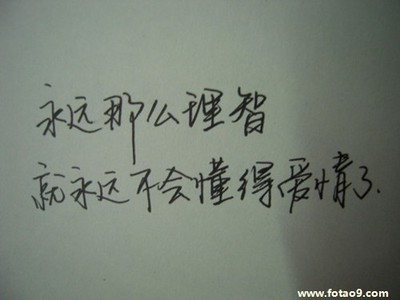 永远那么理智
就永远不会懂得爱情了.
www.fotao9.com